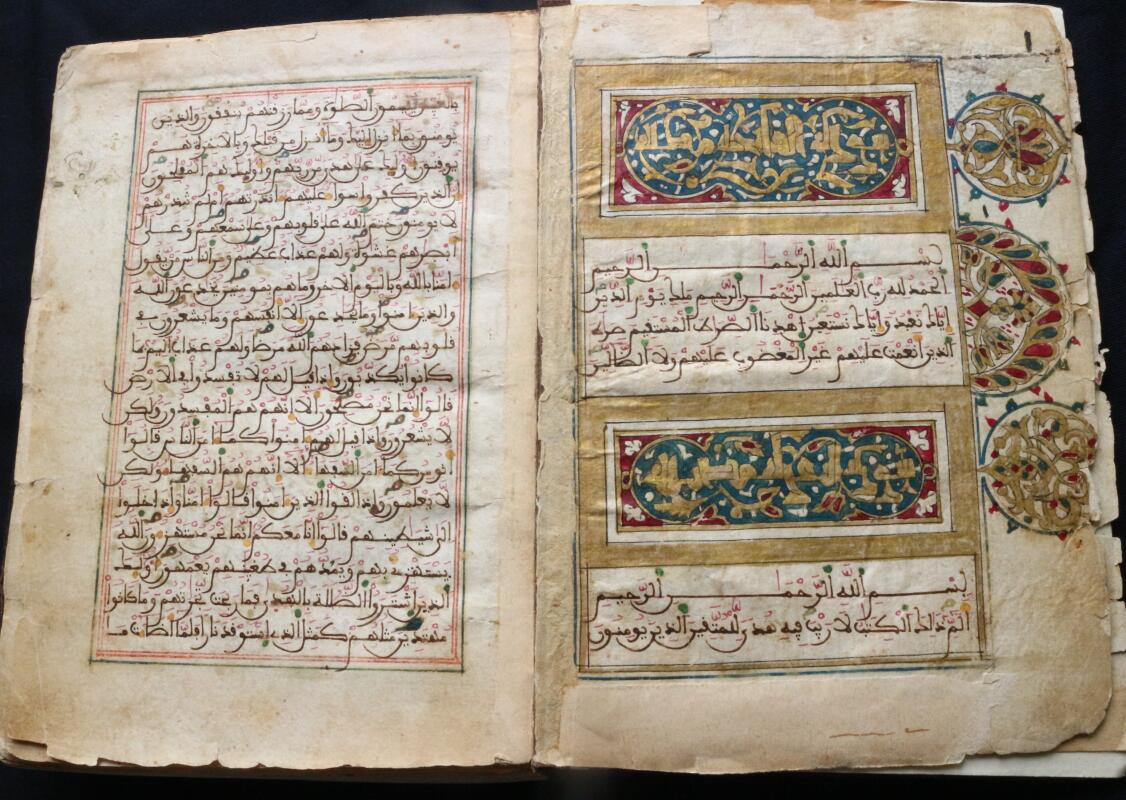 بسم الله الرحمن الرحيم
الحمد لله رب العلمين الرحمن الرحيم ملك يوم الدين
اياك نعبد واياك نستعين اهدنا الصراط المستقيم صرط
الذين انعمت عليهم غير المغضوب عليهم ولا الضالين
بسم الله الرحمن الرحيم
الم ذلك الكتب لا ريب فيه هدى للمتقين الذين يومنون
بالغيب ويقيمون الصلوة ومما رزقنهم ينفقون والذين
يومنون بما انزل اليك وما انزل من قبلك وبالاخرة هم
يوقنون اوليك على هدى من ربهم واوليك هم المفلحون
ان الذين كفروا سوا عليهم انذرتهم ام لم تنذرهم
لا يومنون ختم الله على قلوبهم وعلى سمعهم وعلى
ابصرهم غشوة ولهم عذاب عظيم ومن الناس من يقول
امنا بالله وباليوم الاخر وما هم بمومنين يخدعون الله
والذين امنوا وما يخدعون الا انفسهم وما يشعرون في
قلوبهم مرض فزادهم الله مرضا ولهم عذاب اليم بما
كانوا يكذبون واذا قيل لهم لا تفسدوا في الارض
قالوا انما نحن مصلحون الا انهم هم المفسدون ولكن
لا يشعرون واذا قيل لهم امنوا كما امن الناس قالوا
انومن كما امن السفها الا انهم هم السفها ولكن
لا يعلمون واذا لقوا الذين امنوا قالوا امنا واذا خلوا
الى شيطينهم قالوا انا معكم انما نحن مستهزون الله
يستهزي بهم ويمدهم في طغينهم يعمهون اوليك
الذين اشتروا الضللة بالهدى فما ربحت تجرتهم وما كانوا
مهتدين مثلهم كمثل الذي استوقد نارا فلما اضات ما